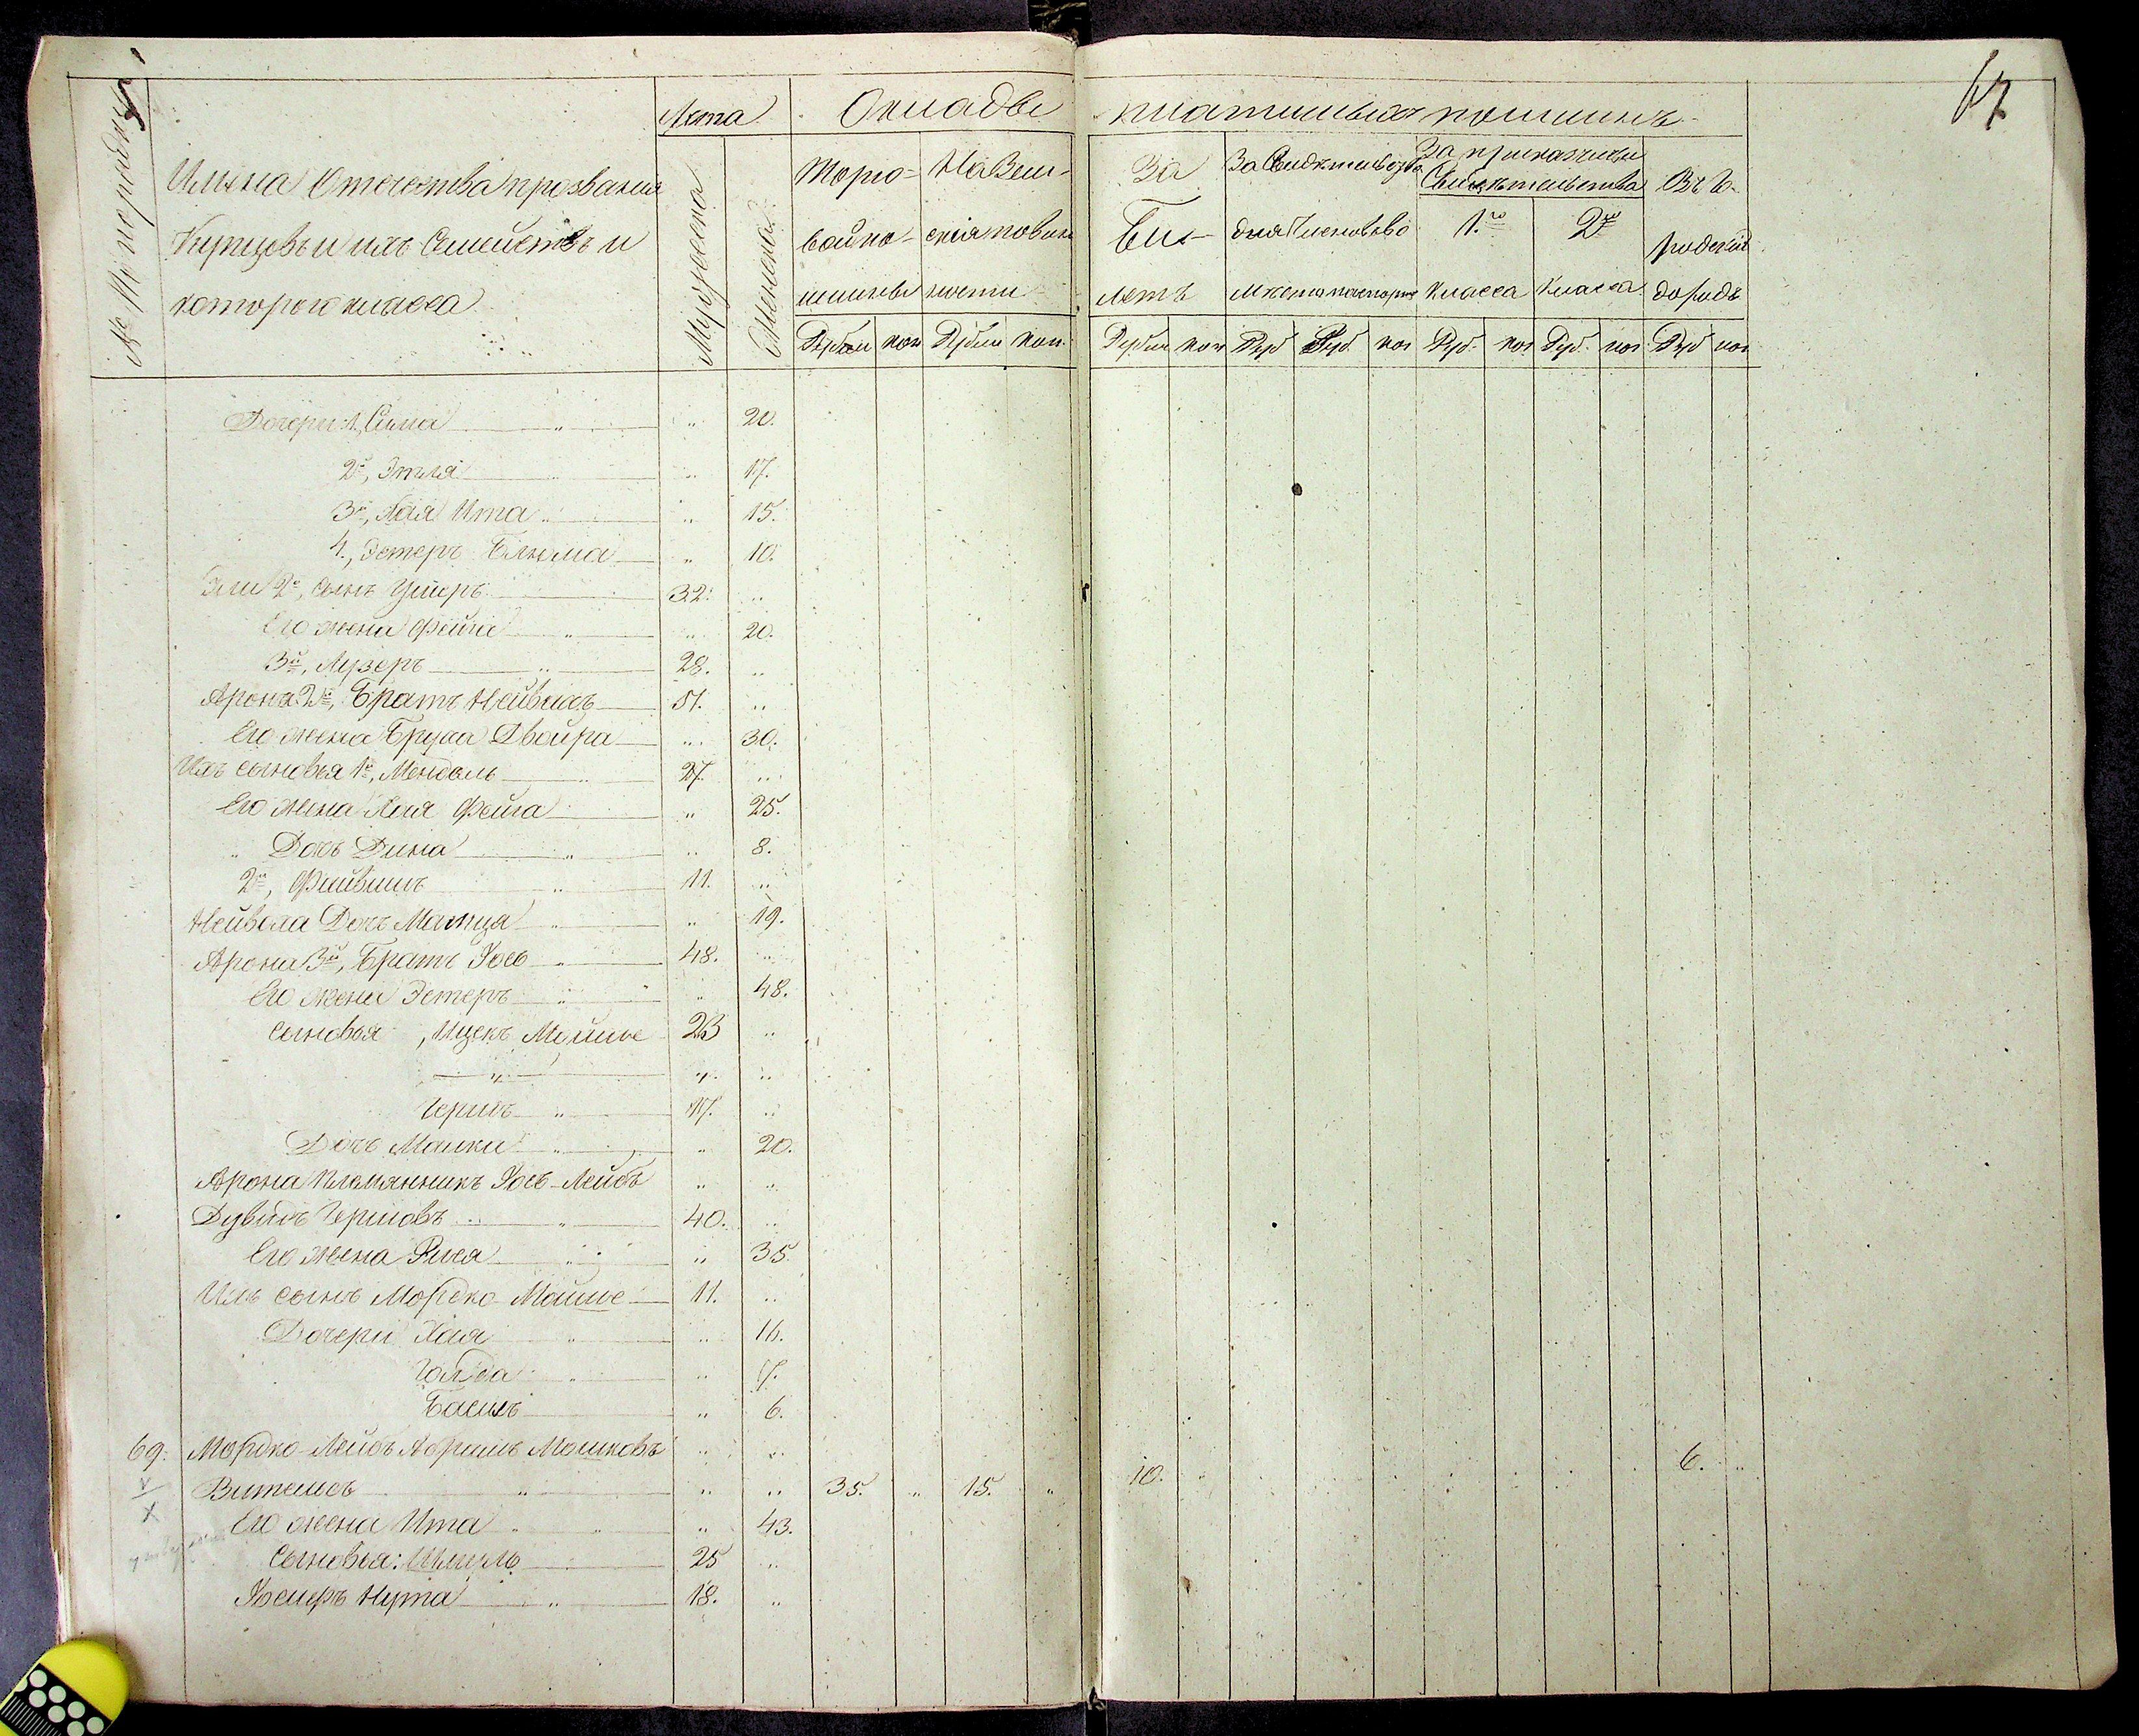 67
№ По порядку
Имена Отечества прозвания
Купцовъ и ихъ Семействъ и
котораго класса
Лета
Мужеска
Женска
Оклады платимыхъ пошлинъ
Торго-
вой по-
шлины
На Зем-
скія повин
ности
За
Би-
летъ
За Свидетельства
для
места
За прикащичьи
Свидетельства
1.го
класса
2.го
класса
Въ Го-
родской
доходъ
Рубли коп Рубли коп. Рубли коп Руб Руб. коп Руб. коп Руб. коп Руб коп
Дочери: 1, Сима " " 20.
2я, Этля " " 17.
3я, Хая Ита " " 15.
4., Эстеръ Блюма " 10.
Эли 2й, сынъ Ушеръ 32. "
Его жена Фейга " " 20.
3й, Лузеръ " 28. "
Арона 2й, Братъ Лейвикъ 51. "
Его жена Двойра " 30.
Ихъ сыновья 1й, Мендель " 27. "
Его жена Хая Фейга " 25.
" Дочь Дина " " 8.
2й, Файвишъ " 11. "
Дочь " " 19.
Арона 3й, Братъ Іось " 48. "
Его жена Эстеръ " " 48.
сыновья , Ицекъ Мойше 23 "
" " "
Гершъ " 17. "
Дочь Малка " " 20.
Арона племянникъ Іось-Лейбъ " "
Дувидъ Гершовъ " 40. "
Его жена " " 35.
Ихъ сынъ Мордко Мойше 11. "
Дочери Хая " " 16.
Голда " " 7.
Бася " 6.
69. Мордко-Лейбъ Абрамъ Мошковъ " " 6. "
" " " 35. " 15. " 10. "
Его жена Ита " " " 43.
Сыновья: Шмуль 25 "
Іосифъ Нута " 18. "